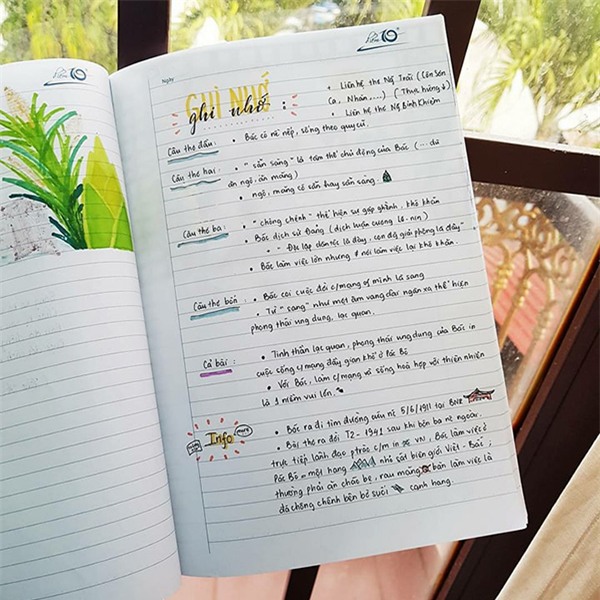 Ngày
GHI NHỚ
ghi nhớ :
• Liên hệ thơ Ng̃ Trãi (Côn Sơn
Ca, Nhàn,...) (Thực hứng ↓)
• Liên hệ thơ Ng̃ Bỉnh Khiêm
Câu thơ đầu:
• Bác có nề nếp, sống theo quy củ.
Câu thơ hai:
• "sẵn sàng" là tâm thế chủ động của Bác (... dù
ăn ngô, ăn măng)
• ngô, măng có sẵn hay sẵn sàng.
Câu thơ ba:
• "chông chênh" thể hiện sự gập ghềnh, khó khăn
• Bác dịch sử Đảng (dịch luận cương Lê-nin)
"Độc lập dân tộc là đây, con đg giải phóng là đây"
• Bác làm việc lớn nhưng # nơi làm việc lại khó khăn.
Câu thơ bốn:
• Bác coi cuộc đời c/mạng of mình là sang
• Từ "sang" như một âm vang dài ngân xa thể hiện
phong thái ung dung, lạc quan.
Cả bài:
• Tinh thần lạc quan, phong thái ung dung của Bác in
cuộc sống c/mạng đầy gian khổ ở Pác Bó
• Với Bác, làm c/mạng và sống hoà hợp với thiên nhiên
là 1 niềm vui lớn.
Info
more
• Bác ra đi tìm đường cứu nc 5/6/1911 tại Bến
• Bài thơ ra đời T2-1941 sau khi bôn ba nc ngoài.
trực tiếp lãnh đạo ptrào c/m in VN, Bác làm việc ở
Pác Bó - một hang nhỏ sát biên giới Việt-
thường phải ăn cháo bẹ, rau măng bàn làm việc là
đá chông chênh bên bờ suối cạnh hang.